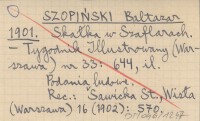 SZOPIŃSKI Baltazar
1901. Skałka w Szaflarach.
– Tygodnik Illustrowany (War-
szawa) nr 33: 644, il.
Podania ludowe.
Rec.: Sawicka St., Wisła
(Warszawa) 16 (1902): 570.